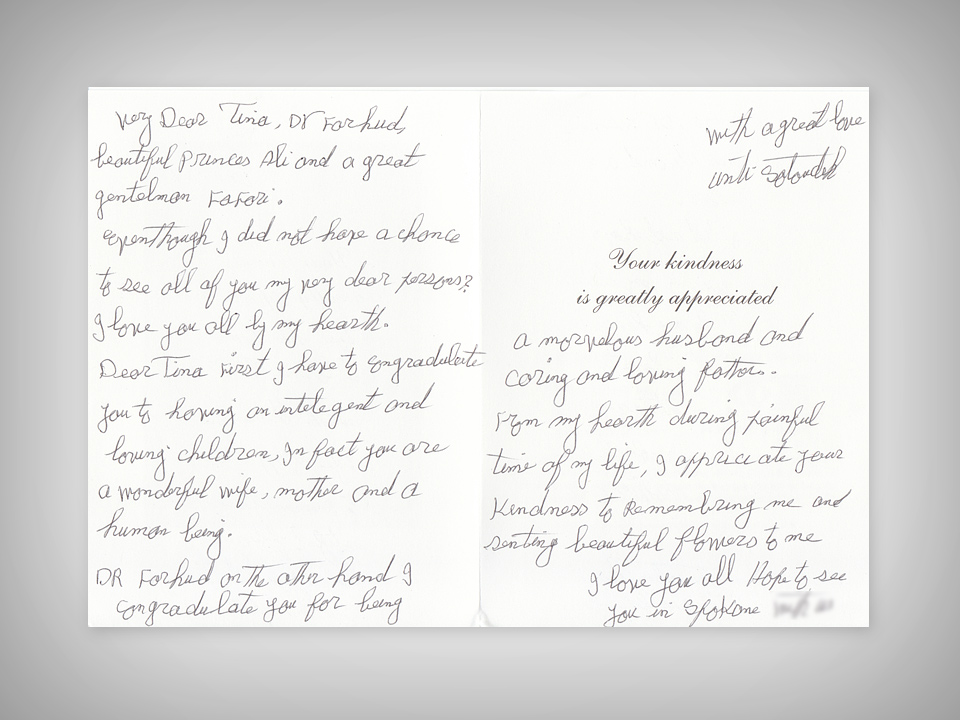 very Dear Tina, Dr Farhud,
beautiful princes Ali and a great
gentelman Fafori.
eventhough I did not have a chance
to see all of you my very dear persons?
I love you all by my hearth.
Dear Tina First I have to congradulate
you to having an intelegent and
loving children, In fact you are
a wonderful wife, mother and a
human being.
DR Farhud on the other hand I
congradulate you for being
with a great love
Your kindness
is greatly appreciated
a marvelous husband and
caring and loving father..
From my hearth during painful
time of my life, I appriciate your
Kindness to Remembring me and
senting beautiful flowers to me
I love you all Hope to see
you in Spokane